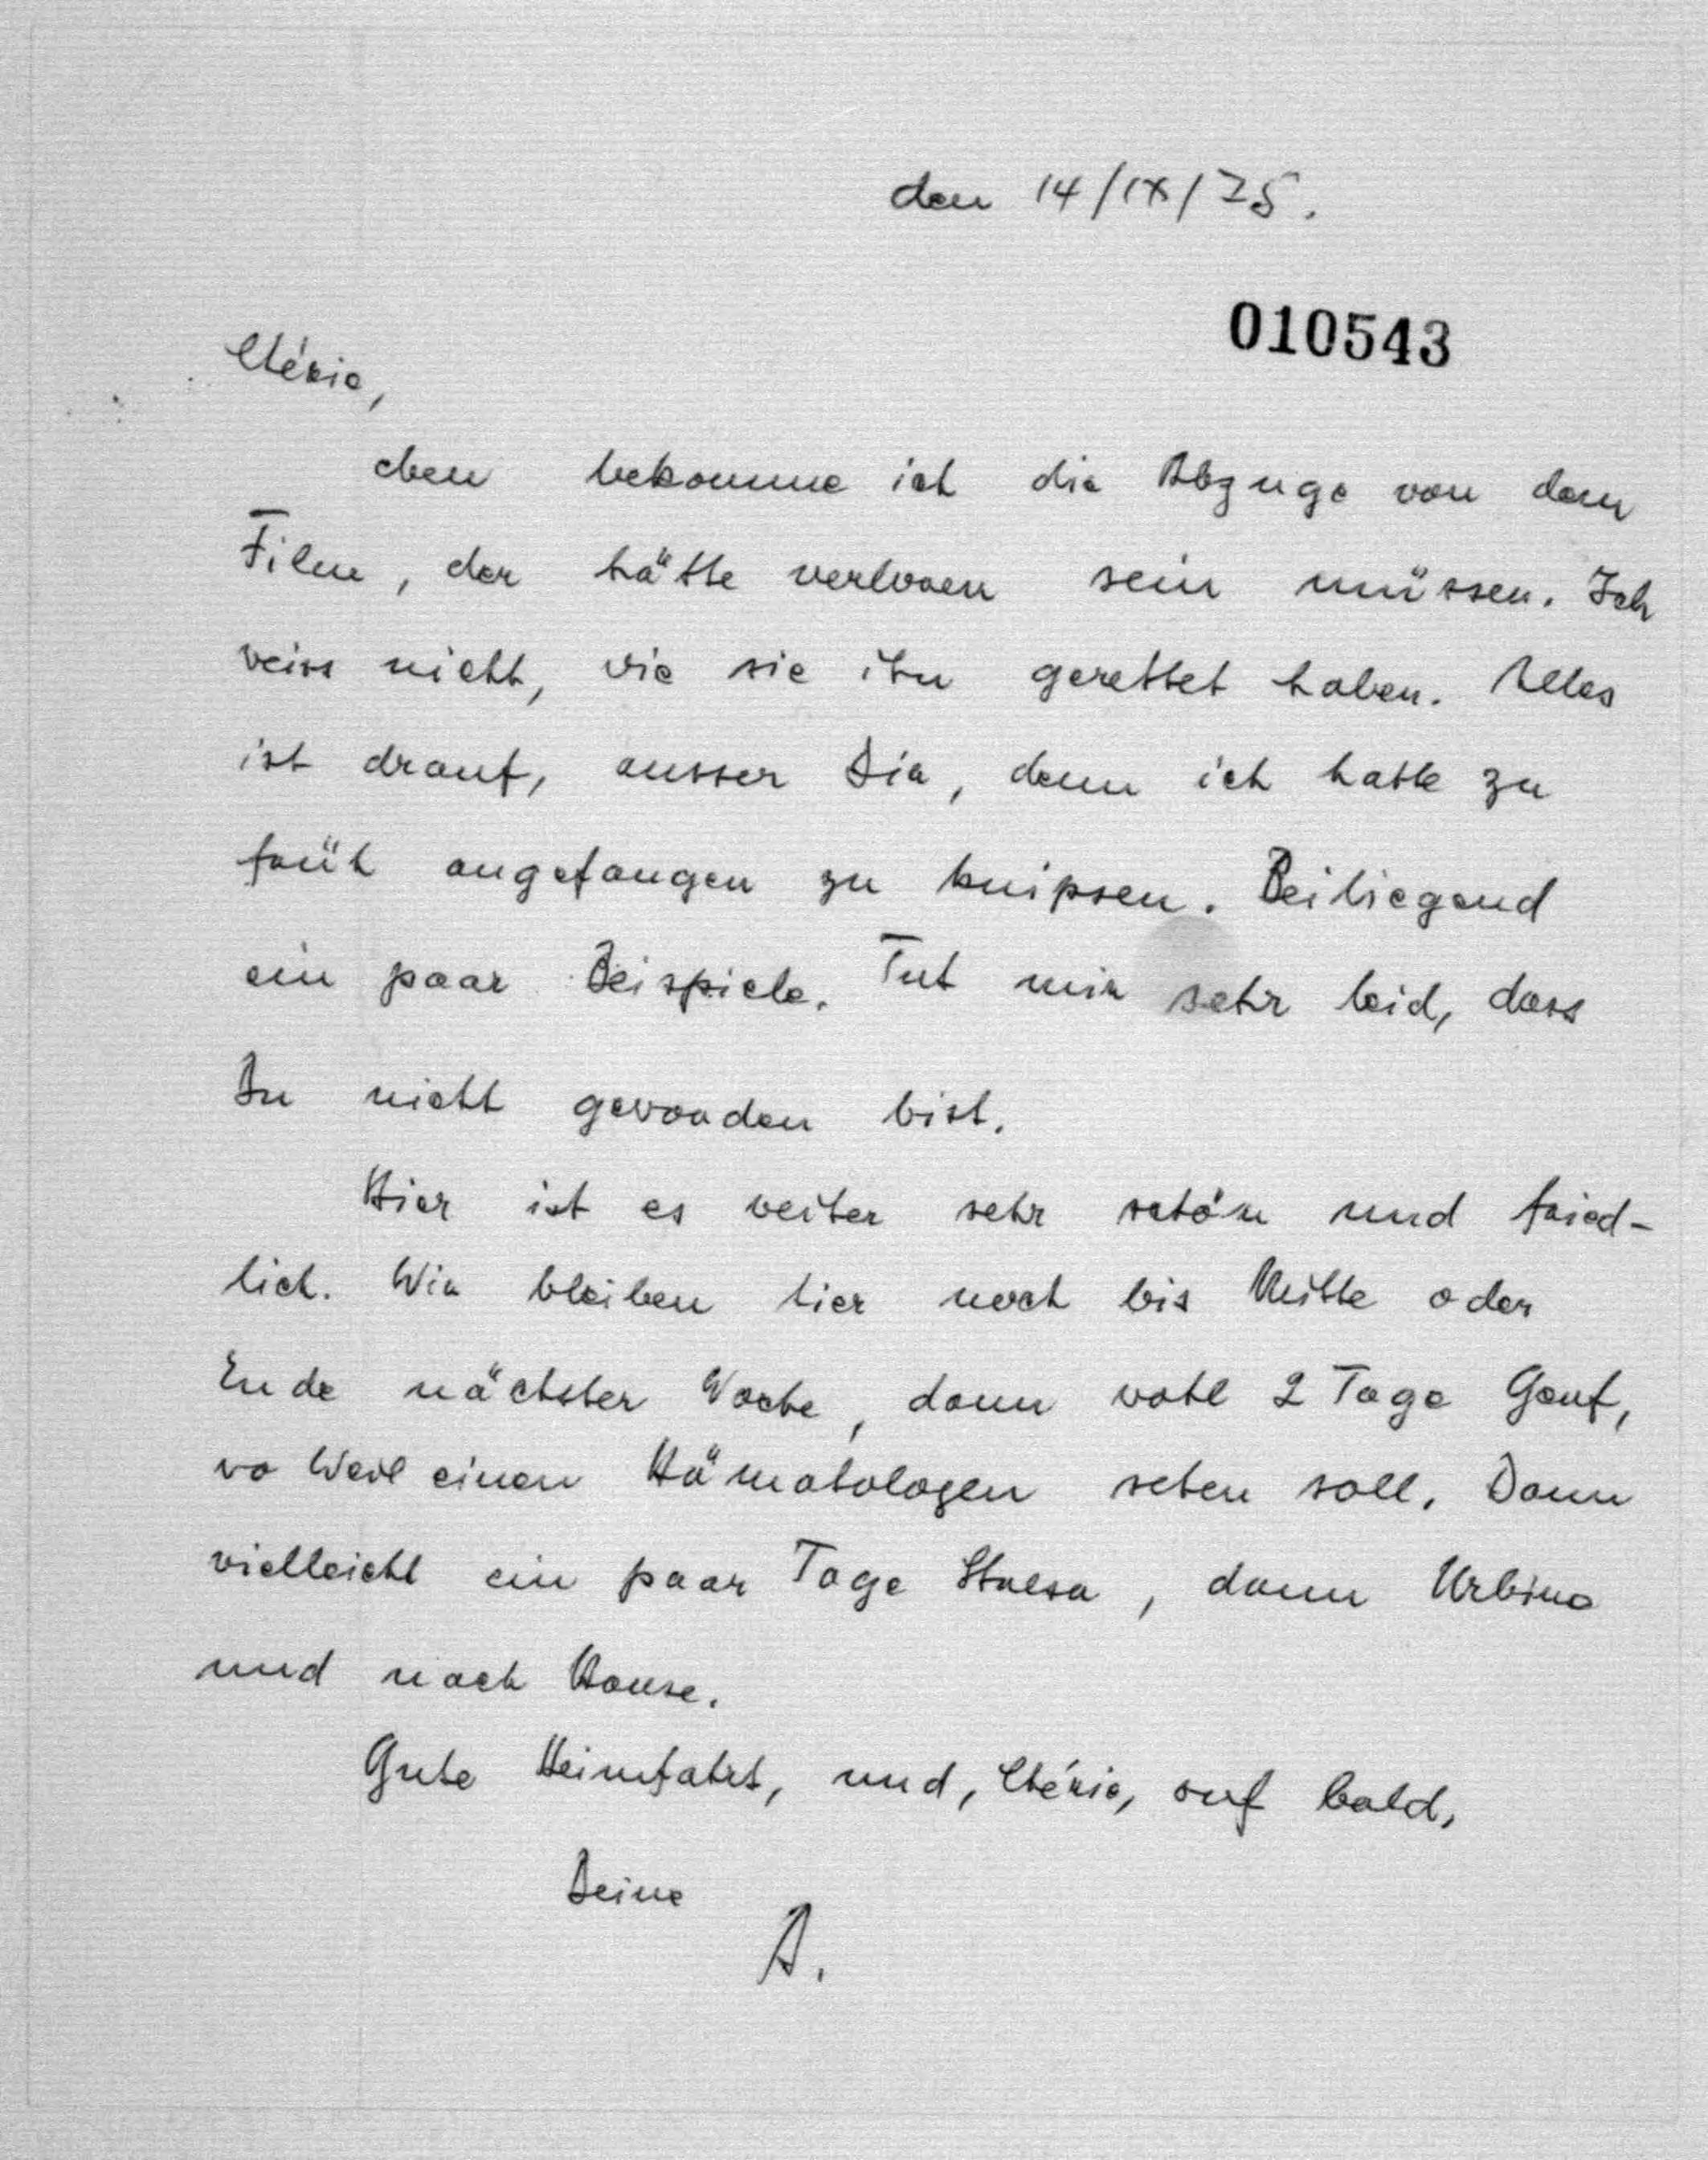 den 14/IX/75.
010543
Chérie,
eben bekomme ich die Abzuge von dem
Film, der hätte verloren sein müssen. Ich
weiss nicht, wie sie ihn gerettet haben. Alles
ist drauf, ausser Dir, denn ich hatte zu
früh angefangen zu knipsen. Beiliegend
ein paar Beispiele. Tut mir sehr leid, dass
Du nicht geworden bist.
Hier ist es weiter sehr schön und fried-
lich. Wir bleiben hier noch bis Mitte oder
Ende nächster Woche, dann wohl 2 Tage Genf,
wo Weil einen Hämatologen sehen soll. Dann
vielleicht ein paar Tage Stresa, dann Urbino
und nach Hause.
Gute Heimfahrt, und, Chérie, auf bald,
Deine
A.